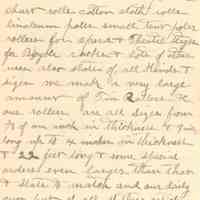 chart roller cotton cloth roller
linoleum poles small tent poles
rollers for spara & Theatre Dyes
for Bicycle chokes & lots of other
uses also slats of all kinds &
sizes we make a very large
amount of Tin Rollers
our rollers are all sizes from
3/8 of an inch in thickness & 9 in
long up to 4 inches in thickness
& 22 feet long & some special
orders even larger than that
& slats to match and our daily
out put